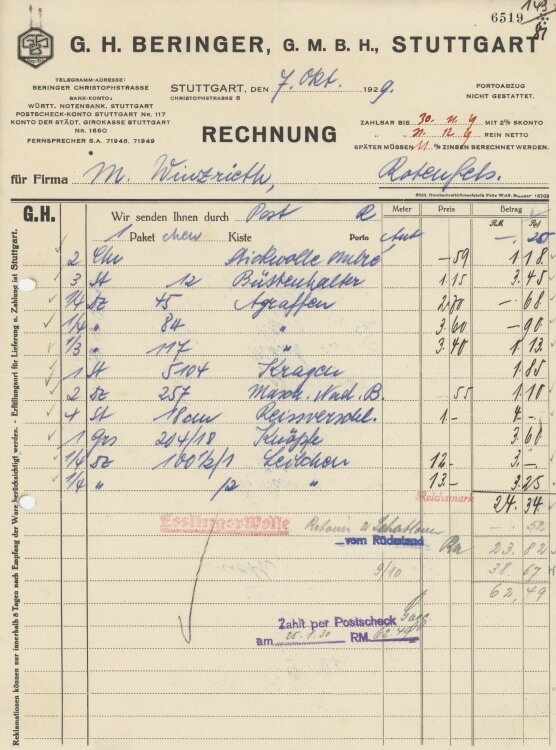 6519
143
81
G. H. BERINGER, G. M. B. H., STUTTGART
TELEGRAMM-ADRESSE:
BERINGER CHRISTOPHSTRASSE
BANK-KONTO:
WÜRTT. NOTENBANK, STUTTGART
POSTSCHECK-KONTO STUTTGART Nr. 117
KONTO DER STÄDT. GIROKASSE STUTTGART
No. 1660
FERNSPRECHER S.A. 71948, 71949
STUTTGART, DEN 7. Okt. 1929.
CHRISTOPHSTRASSE 8
PORTOABZUG
NICHT GESTATTET.
RECHNUNG
ZAHLBAR BIS 30. 11. 9 MIT 2% SKONTO
" 12 9 REIN NETTO
SPÄTER MÜSSEN 11 % ZINSEN BERECHNET WERDEN.
für Firma M. Winzrieth, Rotenfels.
G.H.
Wir senden Ihnen durch Post R
Meter Preis Betrag
RM. Pf
1 Paket Kiste Porto - 20
2 Stickwolle -59 1 18
3 St 12 Büstenhalter 1 15 3.45
1/4 Dz 45 Agraffen 2 70 - 68
1/4 " 84 " 3 60 - 90
1/3 " 117 " 3.40 1.13
1 St 5104 Kragen 1.85
2 Dz 257 Masch. Nad. B. 55 1 10
4 St 18 cm Reissverschl. 1.- 4.-
1 Grs 204/18 Knöpfe 3 60
1/4 Dz 100 1/2/1 12.- 3.-
1/4 " /2 " 13.- 3.25
Reichsmark 24.34
Esslinger Wolle
Retouren - 52
vom Rückstand 23.82
9/10 38 67
62,49
Zahlt per Postscheck
am 25.1.30 RM. 62.49
Reklamationen können nur innerhalb 8 Tagen nach Empfang der Ware berücksichtigt werden. - Erfüllungsort für Lieferung u. Zahlung ist Stuttgart.